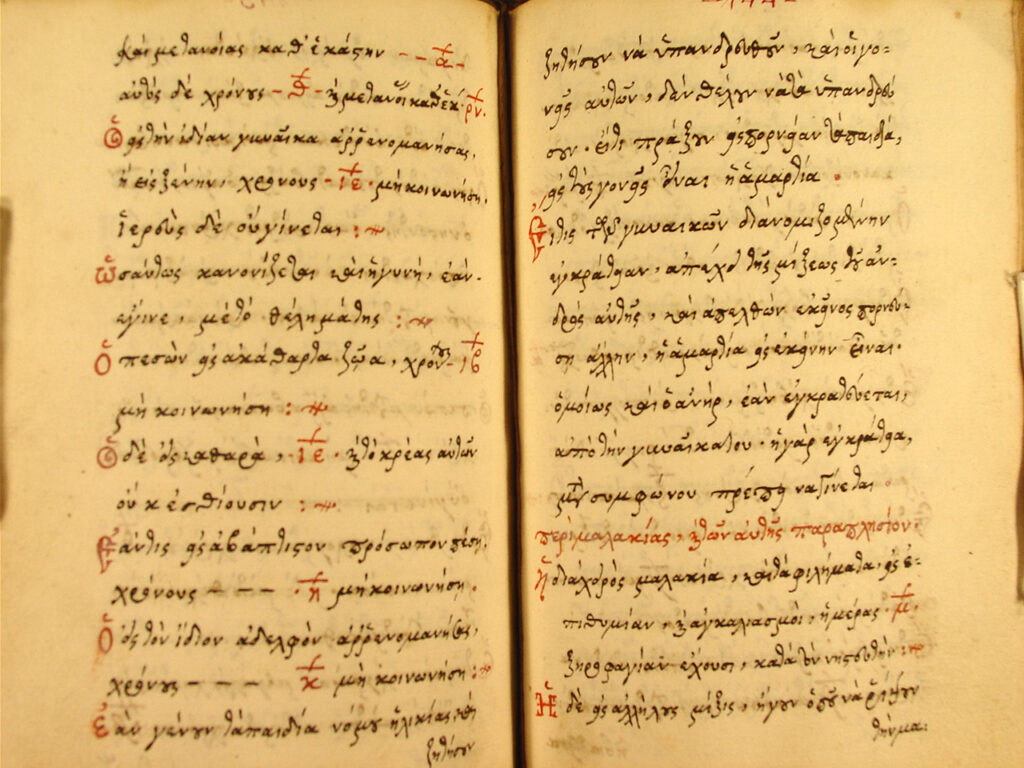 καὶ μετανοίας καθ' ἑκάστην - - α -
αὐτὸς δὲ χρόνους - θ - κ μετανοί καθ ἑκ ρν.
Ὁ εἰς τὴν ἰδίαν γυναῖκα ἀῤῥενομανήσας,
ἢ εἰς ξένην, χρόνους - ιε · μὴ κοινωνήση,
ἱερεὺς δὲ οὐ γίνεται :
ὡσαύτως κανονίζεται καὶ ἡ γυνή, ἐὰν
ἔγινε, μὲ τὸ θέλημά της :
Ὁ πεσὼν εἰς ἀκάθαρτα ζῶα, χρόν - ιβ
μὴ κοινωνήση :
Ὁ δὲ εἰς καθαρά, · ιε · κ τὸ κρέας αὐτῶν
οὐκ ἐσθίουσιν :
Ἐάν τις εἰς ἀβάπτιστον πρόσωπον πέση,
χρόνους - - - · η μὴ κοινωνήση .
Ὁ εἰς τὸν ἴδιον ἀδελφὸν ἀῤῥενομανήσας,
χρόνους - - - κ μὴ κοινωνήση :
Ἐὰν γένουν τὰ παιδία νόμου ἡλικίας, καὶ
ζητήσουν
ζητήσουν νὰ ὑπανδρευθοῦν, καὶ οἱ γο=
νεῖς αὐτῶν, δὲν θέλουν νὰ τὰ ὑπανδρεύ
σουν · εἴ τι πράξουν εἰς πορνείαν τὰ παιδία,
εἰς τοὺς γονεῖς εἶναι ἡ ἁμαρτία .
Εἴ τις τῶν γυναικῶν διὰ νομιζομένην
ἐγκράτειαν, ἀπέχει τῆς μίξεως τοῦ ἀν=
δρὸς αὐτῆς, καὶ ἀπελθὼν ἐκεῖνος πορνεύ=
ση ἄλλην, ἡ ἁμαρτία εἰς ἐκείνην εἶναι ·
ὁμοίως καὶ ὁ ἀνήρ, ἐὰν ἐγκρατεύεται,
ἀπὸ τὴν γυναῖκα του · ἡ γὰρ ἐγκράτεια,
συμφώνου πρέπει να γίνεται
περὶ μαλακίας, κ τῶν αὐτῆς παραπλησίον ·
Ἡ διὰ χειρὸς μαλακία, καὶ τὰ φιλήματα, εἰς ἐ=
πιθυμίαν, κ ἀγκαλιασμοὶ, ἡμέρας · μ ·
ξηροφαγίαν ἔχουσι, κατὰ τὸν νηστευτὴν :
Ἡ δὲ εἰς ἀλλήλους μίξις, ἤγουν
τὴν μα